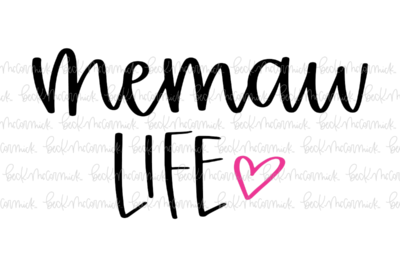 memaw
LIFE